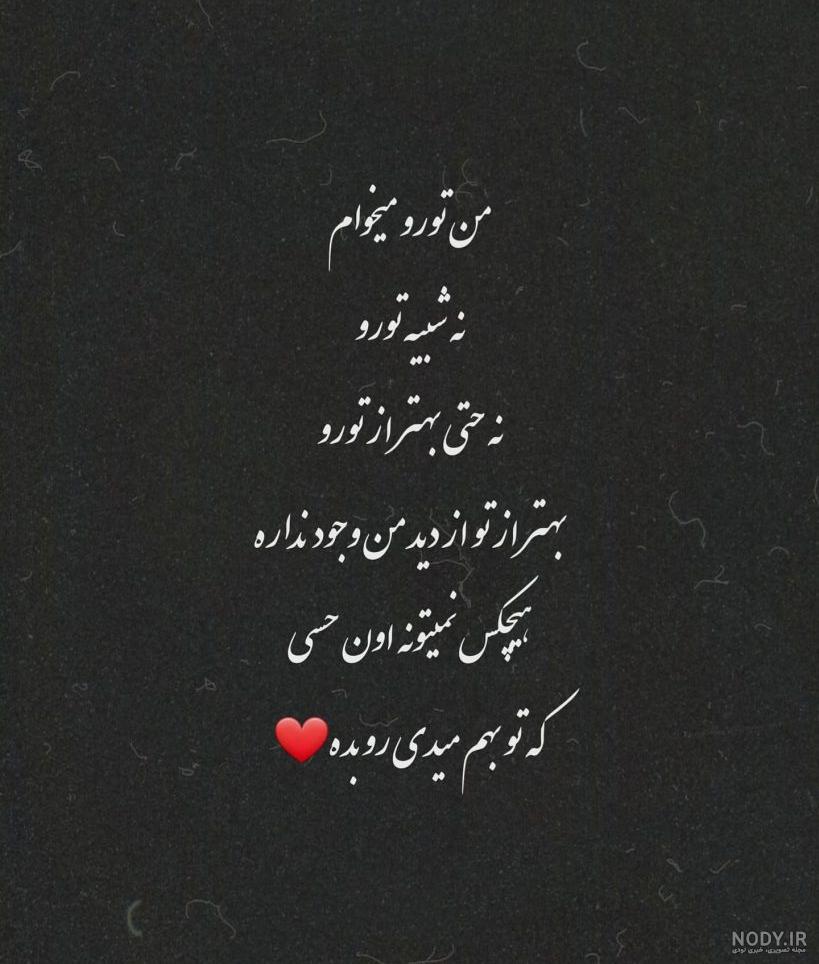 من تورو میخوام
نه شبیه تورو
نه حتی بهتر از تورو
بهتر از تو از دید من وجود نداره
هیچکس نمیتونه اون حسی
که تو بهم میدی رو بده❤️
NODY.IR
مجله تصویری، خبری نودی